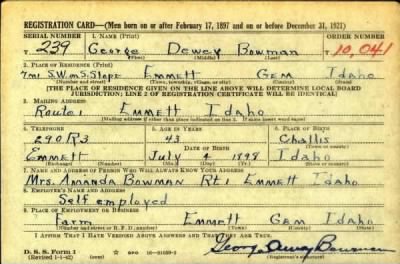 REGISTRATION CARD—(Men born on or after February 17, 1897 and on or before December 31, 1921)
SERIAL NUMBER 1. NAME (Print) ORDER NUMBER
T 239 George Dewey Bowman T 10,041
(First) (Middle) (Last)
2. PLACE OF RESIDENCE (Print)
7mi S.W on S.Slope Emmett Gem Idaho
(Number and street) (Town, township, village, or city) (County) (State)
[THE PLACE OF RESIDENCE GIVEN ON THE LINE ABOVE WILL DETERMINE LOCAL BOARD
JURISDICTION; LINE 2 OF REGISTRATION CERTIFICATE WILL BE IDENTICAL]
3. MAILING ADDRESS
Route 1 Emmett Idaho
[Mailing address if other than place indicated on line 2. If same insert word same]
4. TELEPHONE 5. AGE IN YEARS 6. PLACE OF BIRTH
290R3 43 Challis
DATE OF BIRTH
Emmett July 4 1898 Idaho
(Exchange) (Number) (Mo.) (Day) (Yr.) (State or country)
7. NAME AND ADDRESS OF PERSON WHO WILL ALWAYS KNOW YOUR ADDRESS
Mrs. Amanda Bowman Rt 1 Emmett Idaho
8. EMPLOYER'S NAME AND ADDRESS
Self employed
9. PLACE OF EMPLOYMENT OR BUSINESS
Farm Emmett Gem Idaho
(Number and street or R. F. D. number) (Town) (County) (State)
I AFFIRM THAT I HAVE VERIFIED ABOVE ANSWERS AND THAT THEY ARE TRUE.
D. S. S. Form 1
(Revised 1-1-42) GPO 16—21630-2
George Dewey Bowman
(Registrant's signature)